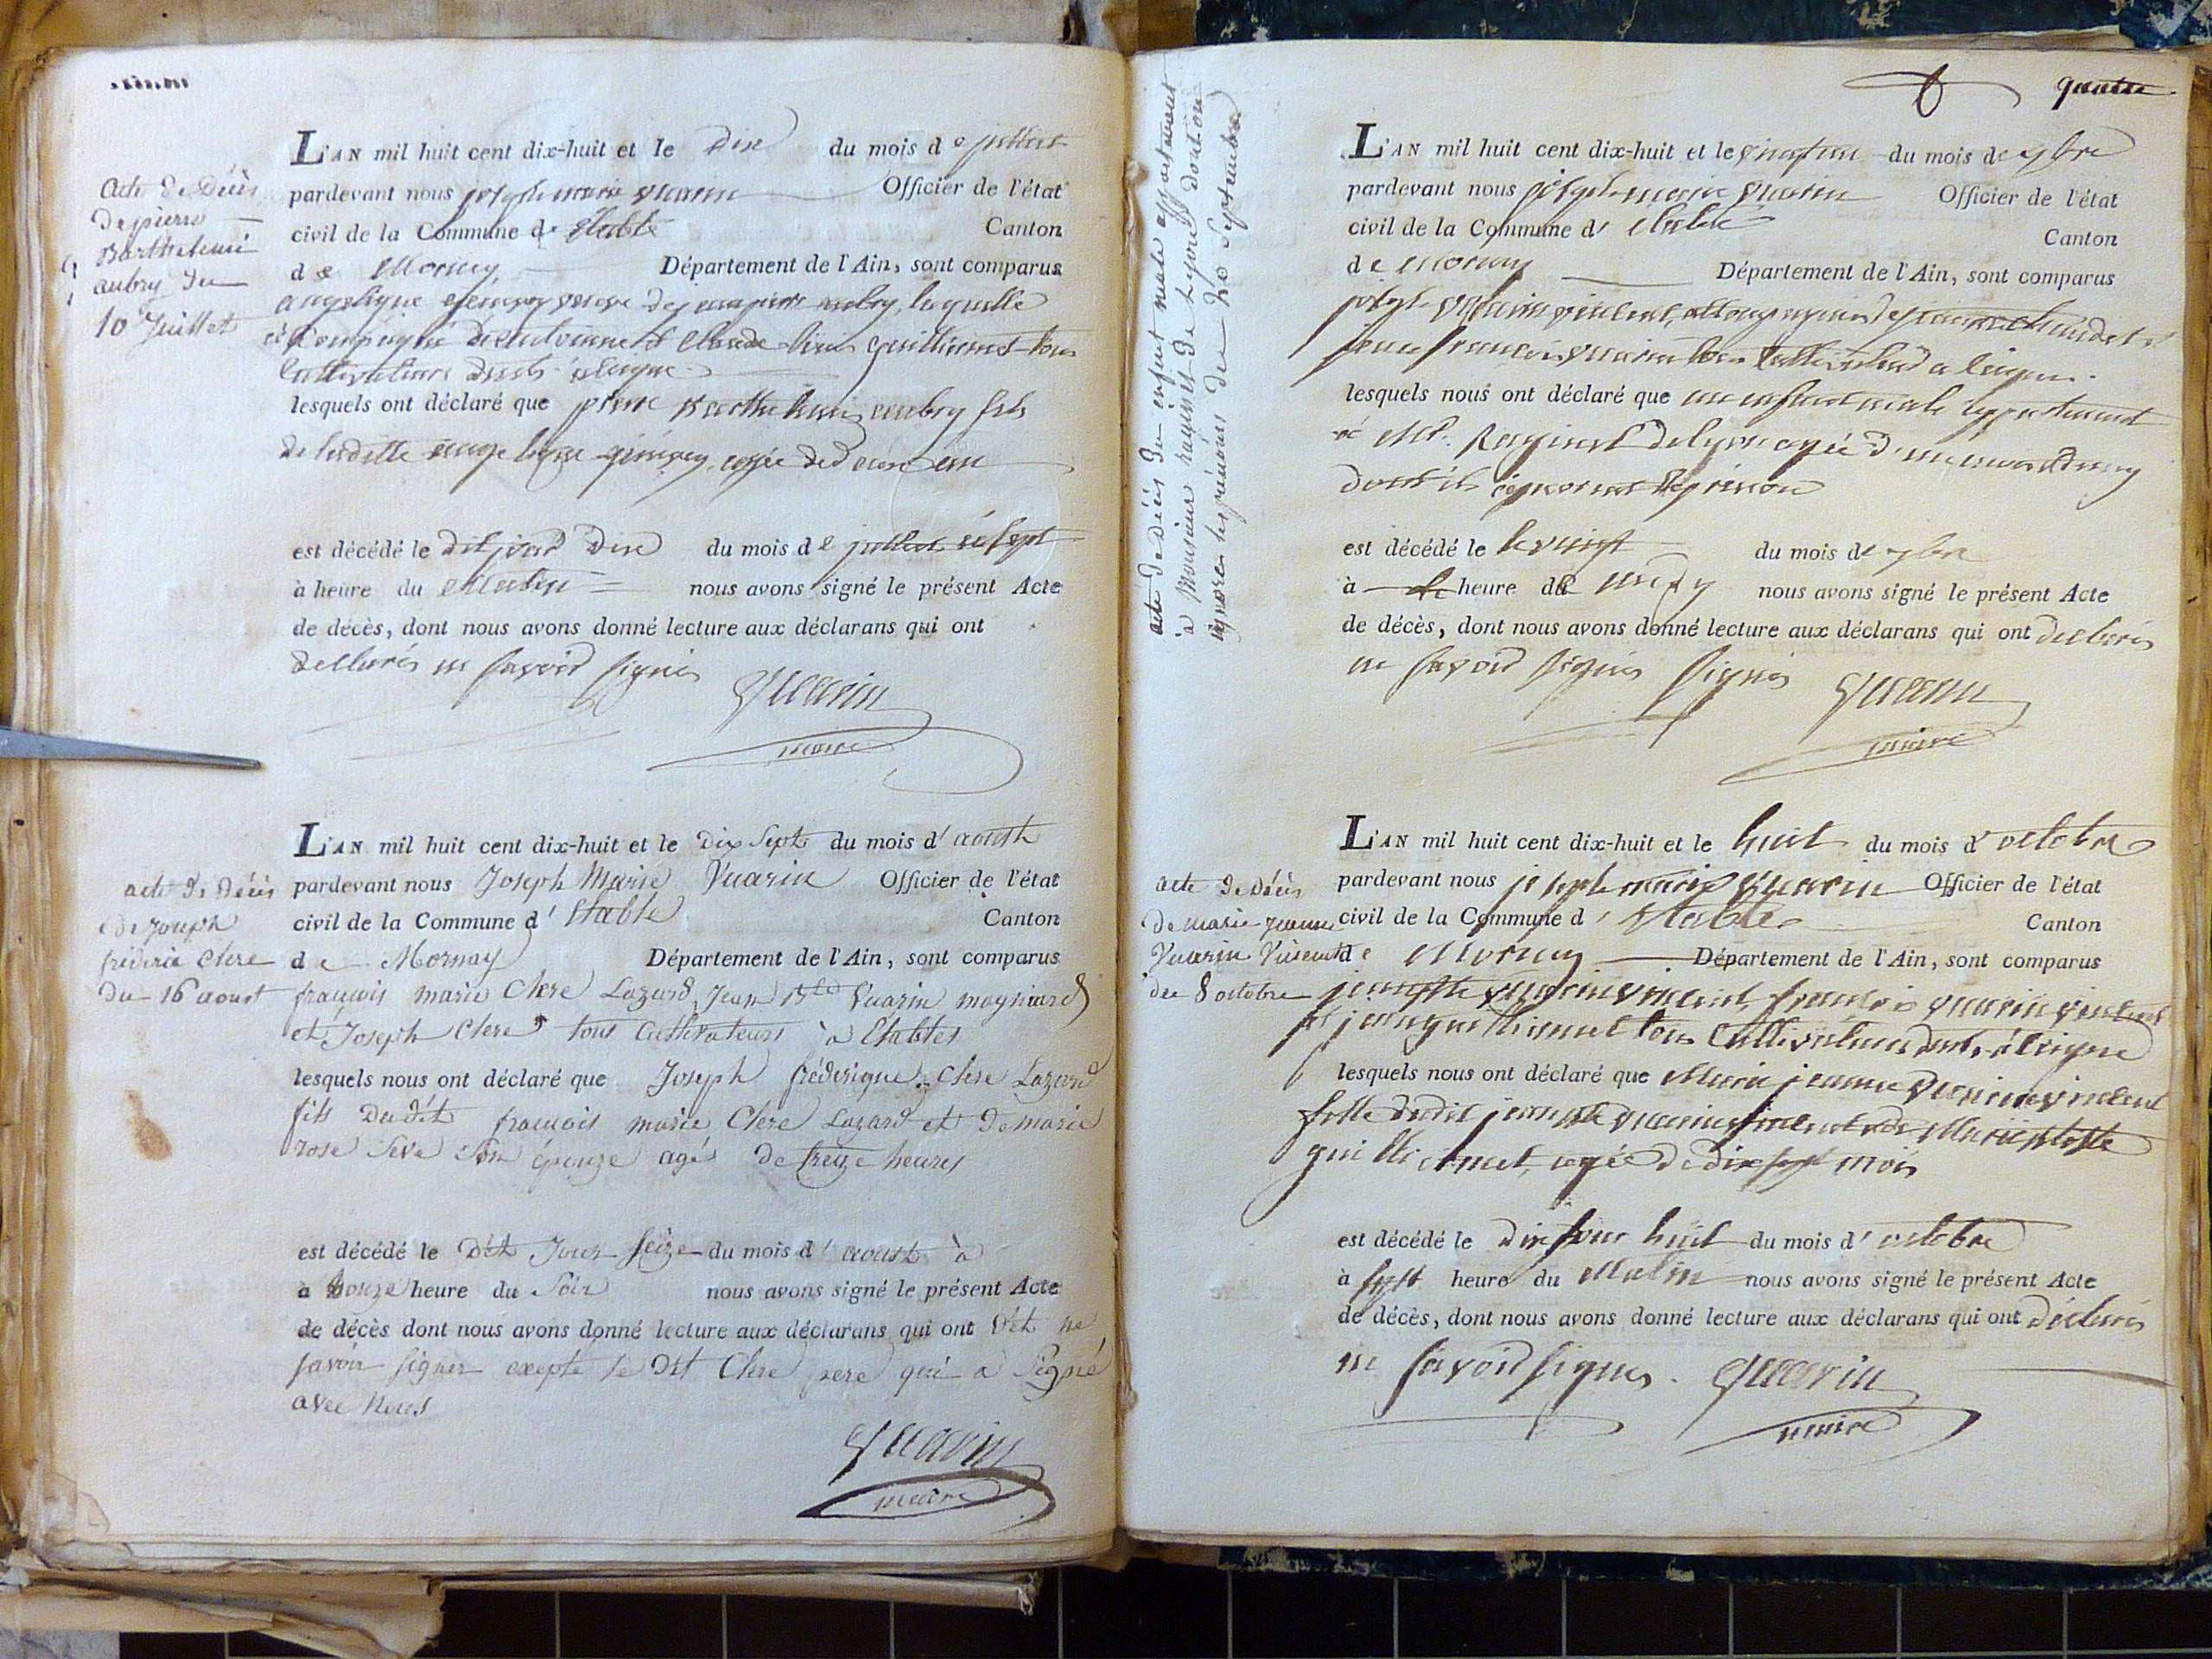 Acte de Décès
de pierre
Barthelemi
aubry du
10 Juillet
L'AN mil huit cent dix-huit et le Dix du mois de juillet
pardevant nous joseph marie vuarin Officier de l'état
civil de la Commune d'Etable Canton
de Mornay Département de l'Ain, sont comparus
angelique veuve de aubry, laquelle
et Claude guillermet tous
Cultivateurs
lesquels ont déclaré que pierre Barthelemi aubry fils
de ladette angelique agée de
est décédé le dit jour Dix du mois de juillet à sept
à heure du Matin nous avons signé le présent Acte
de décès, dont nous avons donné lecture aux déclarans qui ont
declarés ne savoir signés
Vuarin
maire
acte de Décès
de joseph
fréderic Clere
du 16 aoust
L'AN mil huit cent dix-huit et le Dix Sept du mois d'aoust
pardevant nous Joseph Marie Vuarin Officier de l'état
civil de la Commune d'Etable Canton
de Mornay Département de l'Ain, sont comparus
françois marie Clere Lazard, Jean Bte Vuarin magniard
et Joseph Clere tous Cultivateurs à Etables
lesquels nous ont déclaré que Joseph fréderique Clere Lazard
fils Dudit françois marie Clere Lazard et de marie
rose Seve Son épouze agé de treize heures
est décédé le Dit Jour Seize du mois d'aoust à
à onze heure du Soir nous avons signé le présent Acte
de décès dont nous avons donné lecture aux déclarans qui ont Dit ne
savoir signer exepté le Dit Clere pere qui a Signé
avec nous
Vuarin
maire
quatre
acte de Décès du enfant male appartenant
à Monsieur raginet de Lyon dont on
ignore les prénoms du 20 septembre
L'AN mil huit cent dix-huit et le vingt un du mois de 7bre
pardevant nous joseph marie Vuarin Officier de l'état
civil de la Commune d'Etable Canton
de Mornay Département de l'Ain, sont comparus
joseph vuarin vincent, accompagnés de et
françois vuarin tous Cultivateurs a
lesquels nous ont déclaré que un enfant male appartenant
à Mr. Raginet de Lyon agée d'un
dont ils ignorent le prénom
est décédé le le vingt du mois de 7bre
à heure du midy nous avons signé le présent Acte
de décès, dont nous avons donné lecture aux déclarans qui ont declarés
ne savoir signés signés Vuarin
maire
acte de Décès
de marie jeanne
Vuarin Vincent
du 8 octobre
L'AN mil huit cent dix-huit et le huit du mois d'octobre
pardevant nous joseph marie Vuarin Officier de l'état
civil de la Commune d'Etables Canton
de Mornay Département de l'Ain, sont comparus
jean bte vuarin vincent, françois vuarin vincent
et guillermet tous Cultivateurs
lesquels nous ont déclaré que Marie jeanne Vuarin vincent
fille dudit jean bte vuarin vincent et de Marie
guillermet, agée de dix sept mois
est décédé le dix jour huit du mois d'octobre
à sept heure du Matin nous avons signé le présent Acte
de décès, dont nous avons donné lecture aux déclarans qui ont déclarés
ne savoir signés. Vuarin
maire